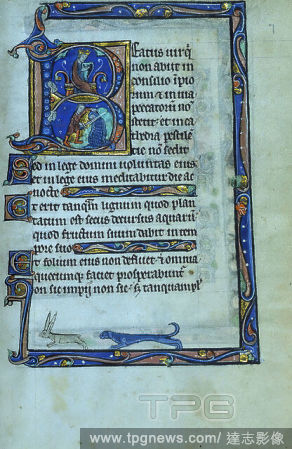 Beatus vir q
non abiit in
consilio ipio
rum et in uia
peccatorum no
stetit et in ca
thedra pestile
tie non sedit
Sed in lege domini uoluntas eius
et in lege eius meditabitur die ac
nocte
Et erit tanquam lignum quod plan
tatum est secus decursus aquarum
quod fructum suum dabit in tem
pore suo
Et folium eius non defluet et omnia
quecunque faciet prosperabuntur
Non sic impii non sic
TPG
www.tpgnews.com/ 達志影像